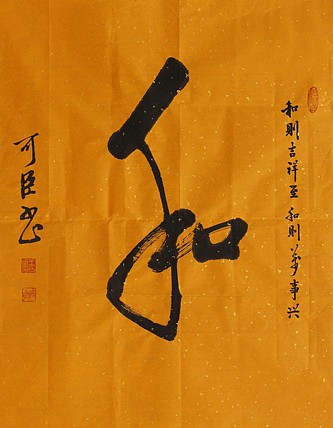 和则吉祥至和则萬事兴
和
可臣